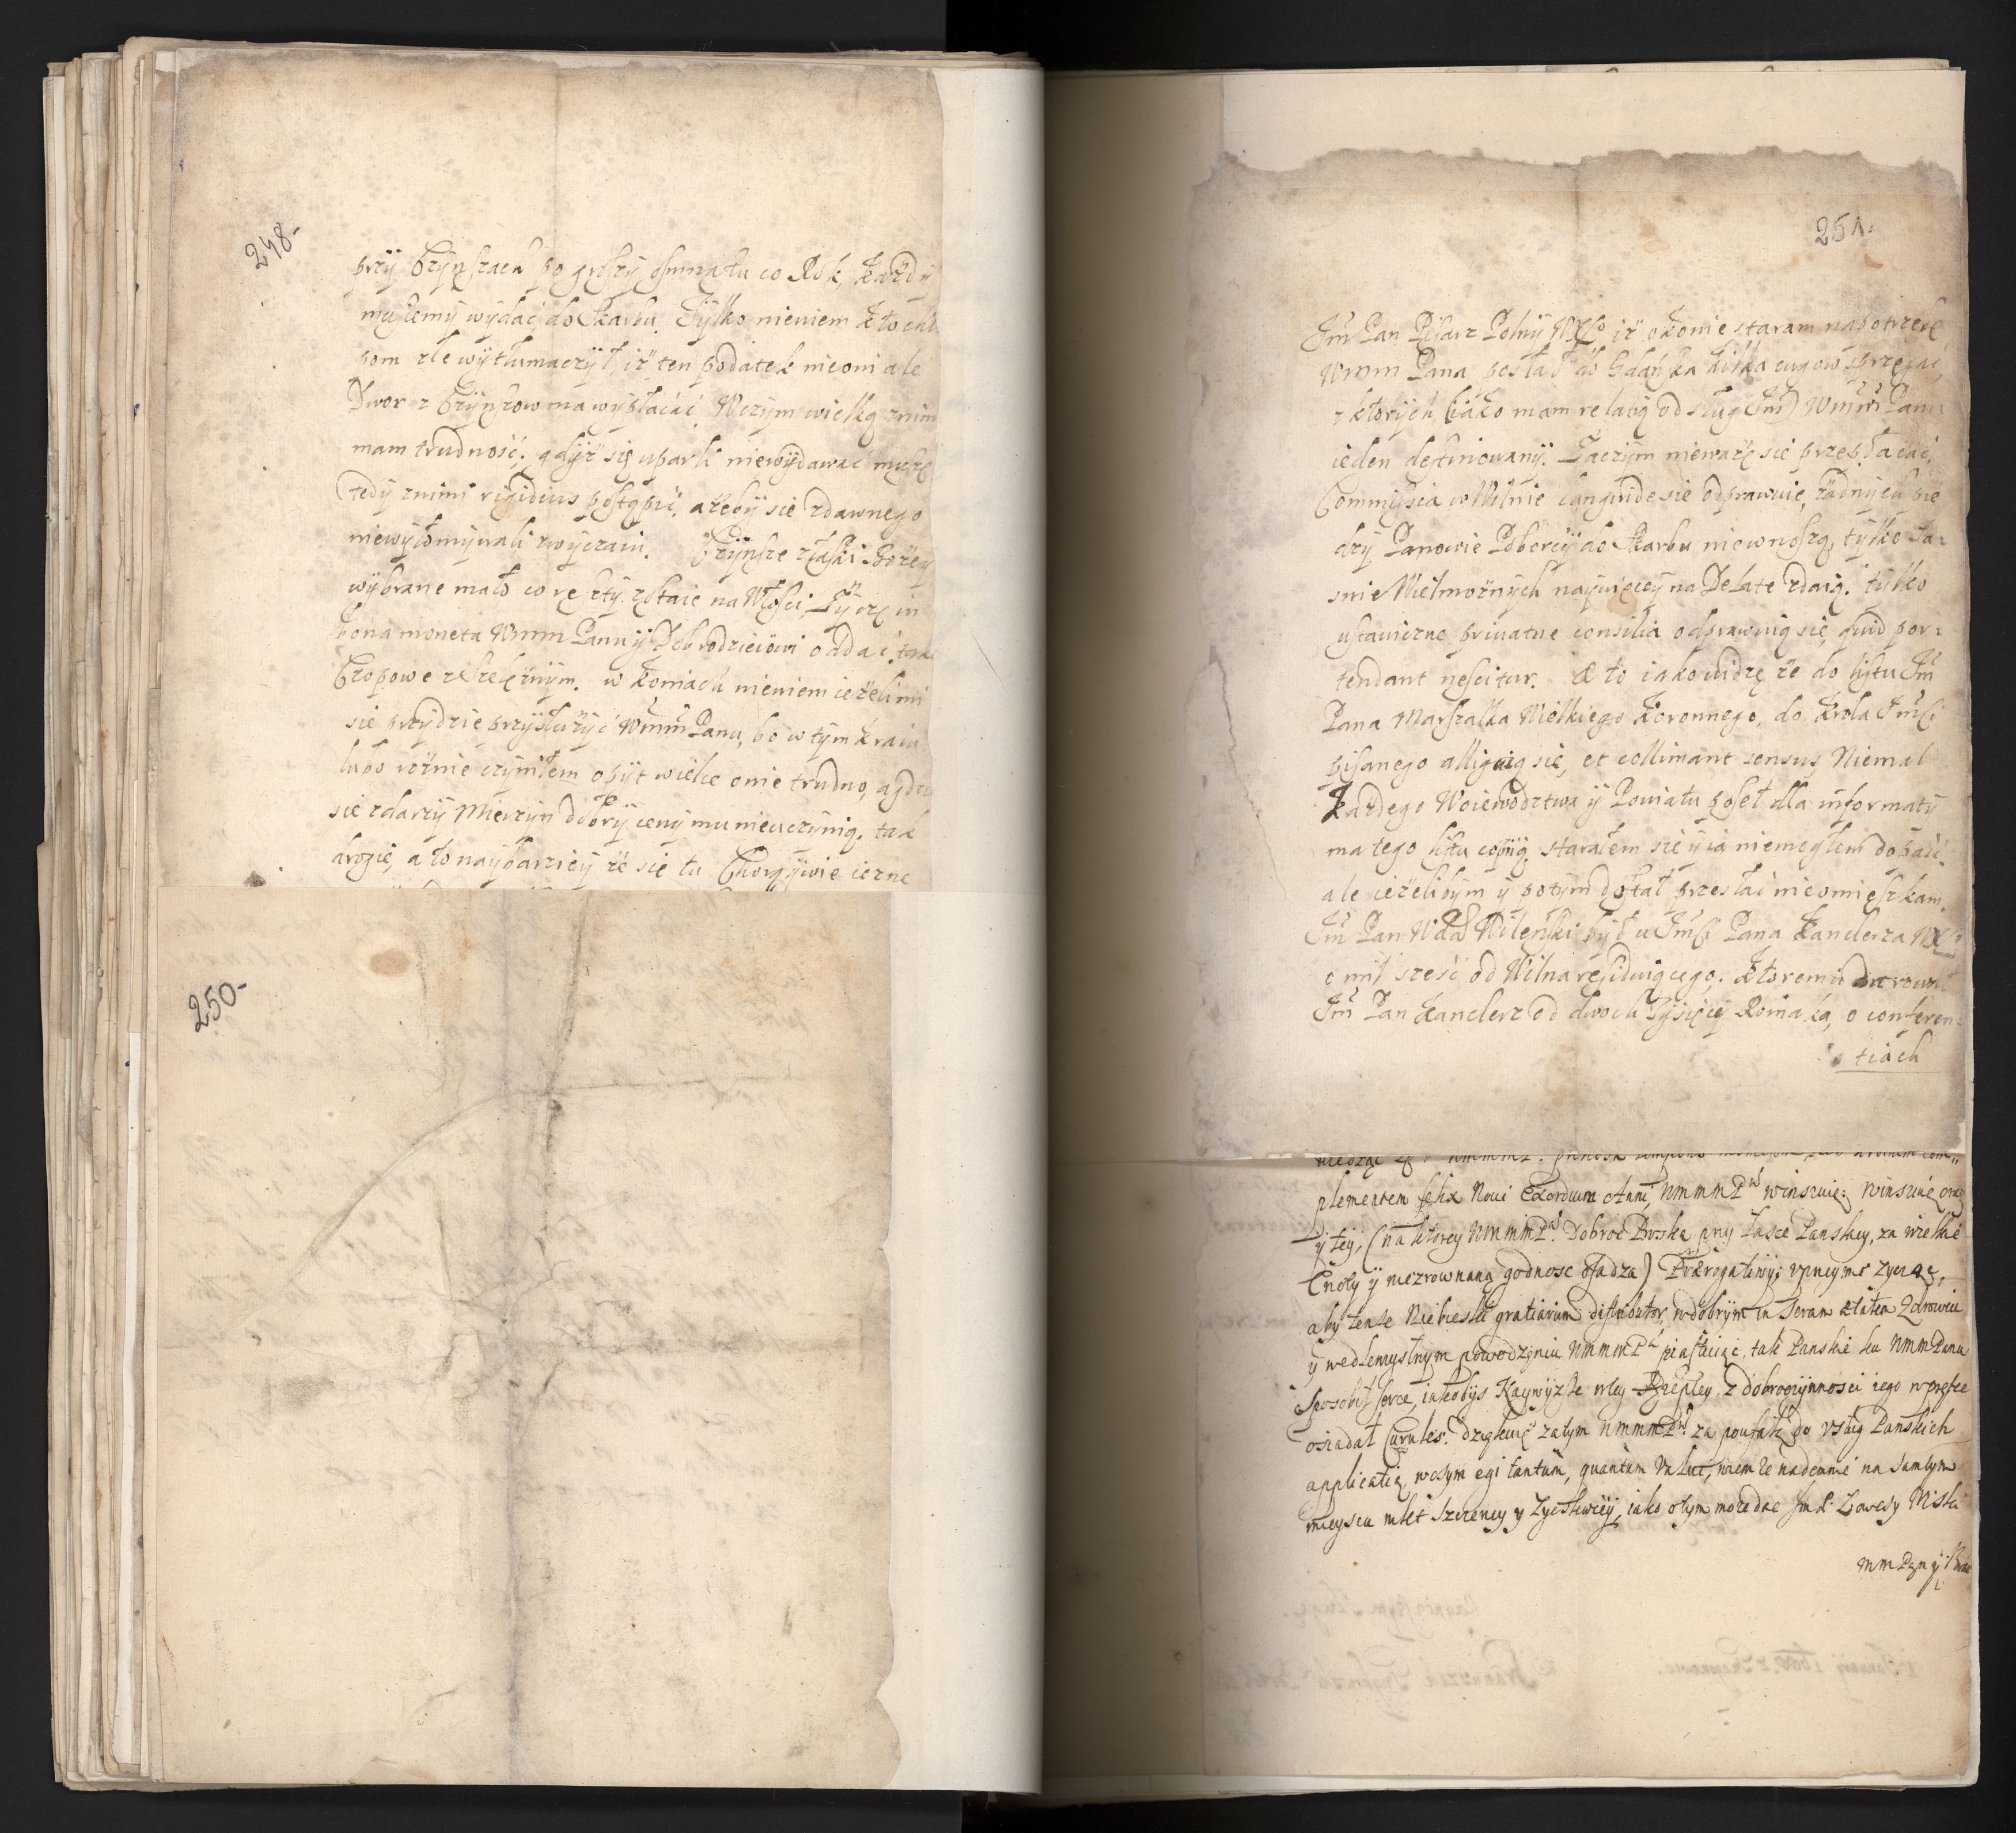 248-
przÿ Czÿnszach po groszÿ osmnastu co Rok, każdÿ
muszemÿ wÿdać do Skarbu. Tÿlko niewiem kto chło
pom zle wÿtłumaczÿł, iż ten podatek nie oni ale
Dwor z Czÿnszow ma wÿpłacać. Wczÿm wielką znimi
mam trudność; gdÿż się uparli niewÿdawać muszę
tedÿ znimi rigidius postąpić, ażebÿ sie zdawnego
niewÿłomÿwali zwÿczaiu. Czÿnsze złaski Bożeÿ
wÿbrane mało co resztÿ zostaie na Włości, Życzę in
bona moneta Wmm Panu ÿ Dobrodzieiowi oddać, tak
Czopowe z Szelężnÿm. w koniach niewiem ieżeli mi
sie przÿdzie przÿsłużÿć Wmm Panu, bo w tÿm kraiu
lubo różnie czÿniłem opÿt wielce o nie trudno, a gdzie
sie zdarzÿ Mierzÿn dobrÿ cenÿ mu nieuczÿnią. tak
drogie, a to naÿbarzieÿ że sie tu Chorąÿwie iezne
250-
251.
Jm̃ Pan Pisarz Polnÿ WXLo iż o konie staram na potrzebę
Wmm Pana posłał do Gdańska kilka cugow sprzęgać,
z ktorÿch (iako mam relatią od sług Jm̃) Wmm Panu
ieden destinowanÿ. Zaczÿm nieważę sie przepłacać.
Commissia w Wilnie languide sie odprawuie, żadnÿch pie
dzÿ Panowie Poborcÿ do Skarbu niewnoszą, tÿlko Ja-
snie Wielmożnÿch naÿwięceÿ na Delate zdaią. tÿlko
ustawiczne priuatne consilia odprawuią się, quid por-
tendant nescitur. A to iako widzę że do listu Jm̃
Pana Marszałka Wielkiego Koronnego, do Krola Jm̃ci
pisanego alliguią sie, et collimant sensus Niemal
Każdego Woiewodztwa ÿ Powiatu poseł dla informatÿ
ma tego listu copiią. starałem sie ÿ ia niemogłem dostać
ale ieżelibÿm ÿ potÿm dostał przesłać nieomieszkam.
Jm̃ Pan Wda Wileński bÿł u Jm̃ci Pana Kanclerza WXL
o mil sześć od Wilna residuiącego. Ktoremu darował
Jm̃ Pan Kanclerz od dwoch Tÿsięcÿ Roinaka, o conferen-
tiach
plementem felix Noui Exordium Anni, WmmmPw winszuię; Winszuię oraz
ÿ teÿ, (na ktorey WmmmPa Dobroć Boska przy łasce Panskey, za wielkie
Cnoty ÿ niezrownaną godnosc osadza) Prærogatiwÿ; vprzeymie zycząc,
aby tenże Niebieski gratiarum distributor, w dobrÿm in seram ætatem Zdrowiu
ÿ wedlemyslnym powodzęniu WmmmPa piastuiąc, tak Panskie ku WmmPanu
sposobił serce, iakobys Naywÿzsze w tey Rzepltey, z dobroczÿnnosci iego w prętce
osiadał Curules. Dzięknię zatym WmmmPw za poufałą do vsług Panskich
applicatią, w czym egi tantum, quantum valui, wiem że nademnie na samtym
mieyscu niket szczerzey y Zyczliwiey, iako o tym może dac Jm P. Łowczy Minski
mm Pan ÿ Brat